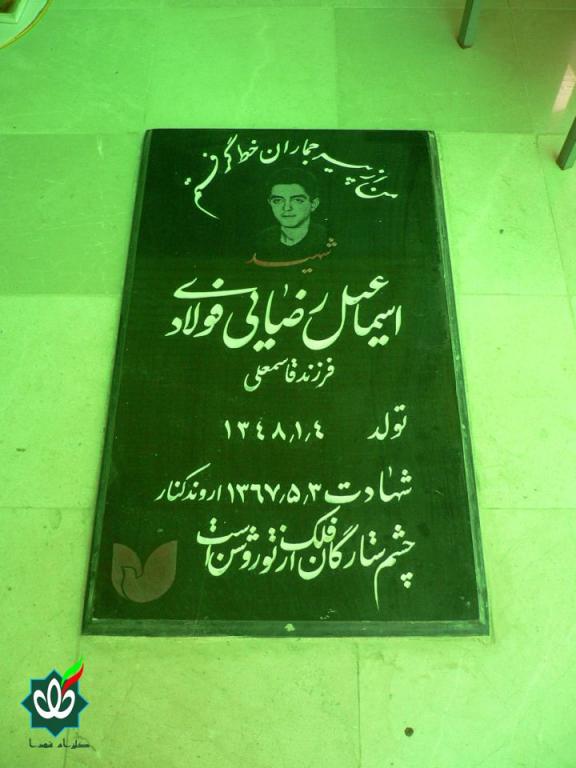 من ز پیر جماران خط گرفتم
شهید
اسماعیل رضایی فولادی
فرزند قاسمعلی
تولد ۱۳٤۸٫۱٫٤
شهادت ۱۳٦۷٫۵٫۳ اروندکنار
چشم ستارگان فلک از تو روشن است
گلزار شهدا